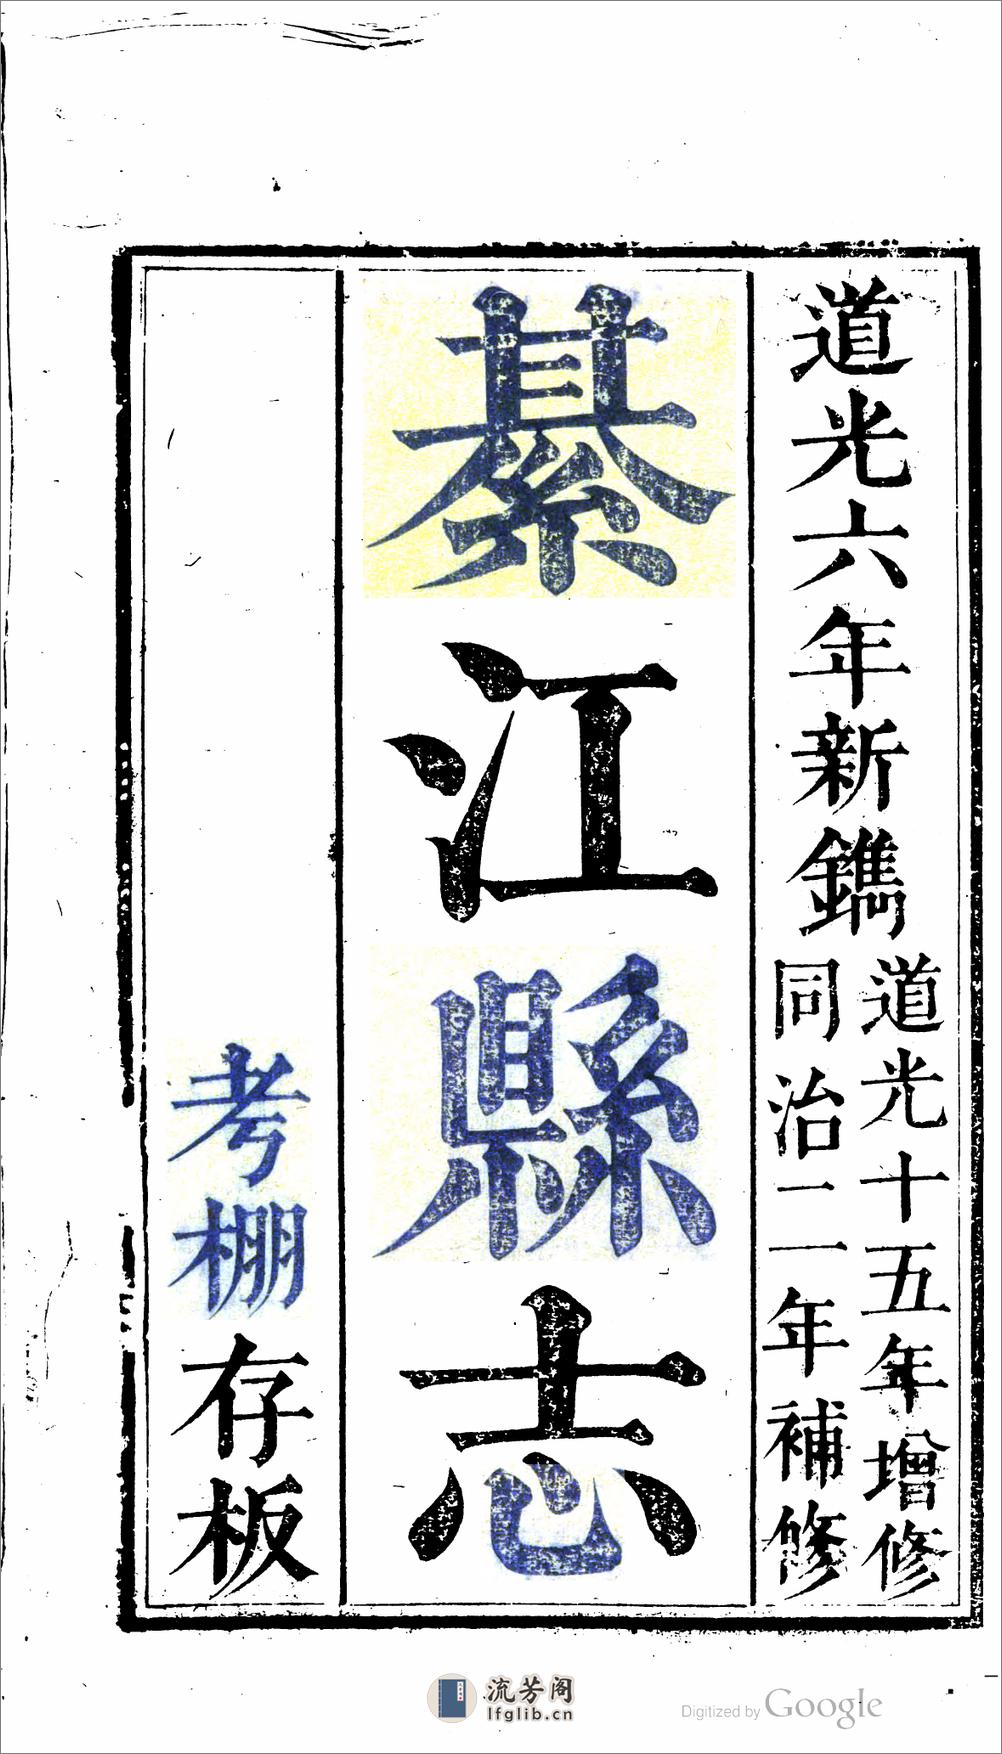 道光六年新鐫
道光十五年增修
同治二年補修
綦江縣志
考棚存板
流芳阁
lfglib.cn
Digitized by Google